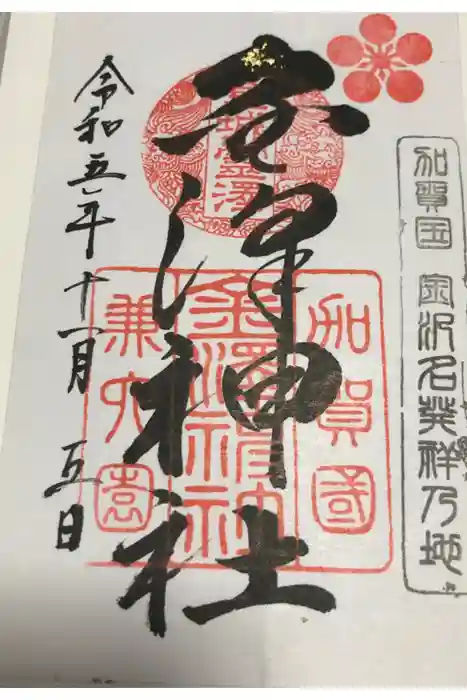 加賀国 金沢名発祥乃地
金澤神社
加賀國
金澤神社
兼六園
令和五年十一月五日